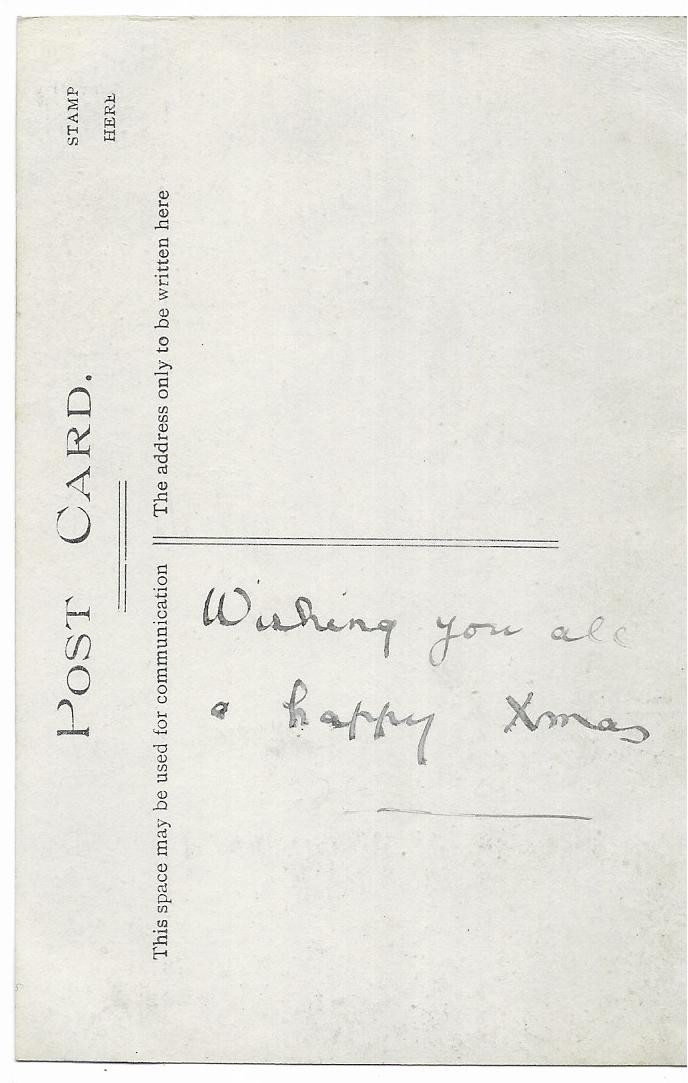 POST CARD.
STAMP
HERE
This space may be used for communication
The address only to be written here
Wishing you all
a happy Xmas